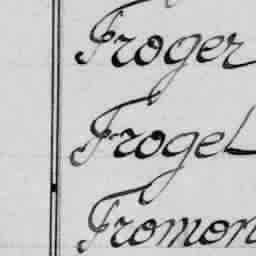 Froger
Frogel
Fromon